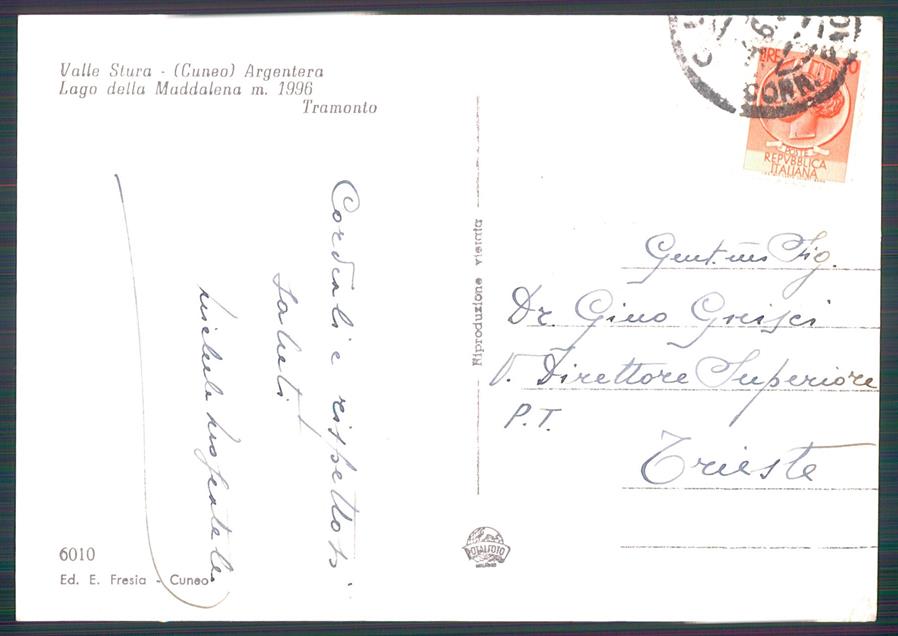 Valle Stura - (Cuneo) Argentera
Lago della Maddalena m. 1996
Tramonto
Cordiali e rispettosi
saluti
Michele
Riproduzione vietata
LIRE
CORR.
POSTE
REPVBBLICA
ITALIANA
Gent.mo Sig.
Dr. Gino Grisci
V. Direttore Superiore
P.T.
Trieste
6010
Ed. E. Fresia - Cuneo
ROTALFOTO
MILANO